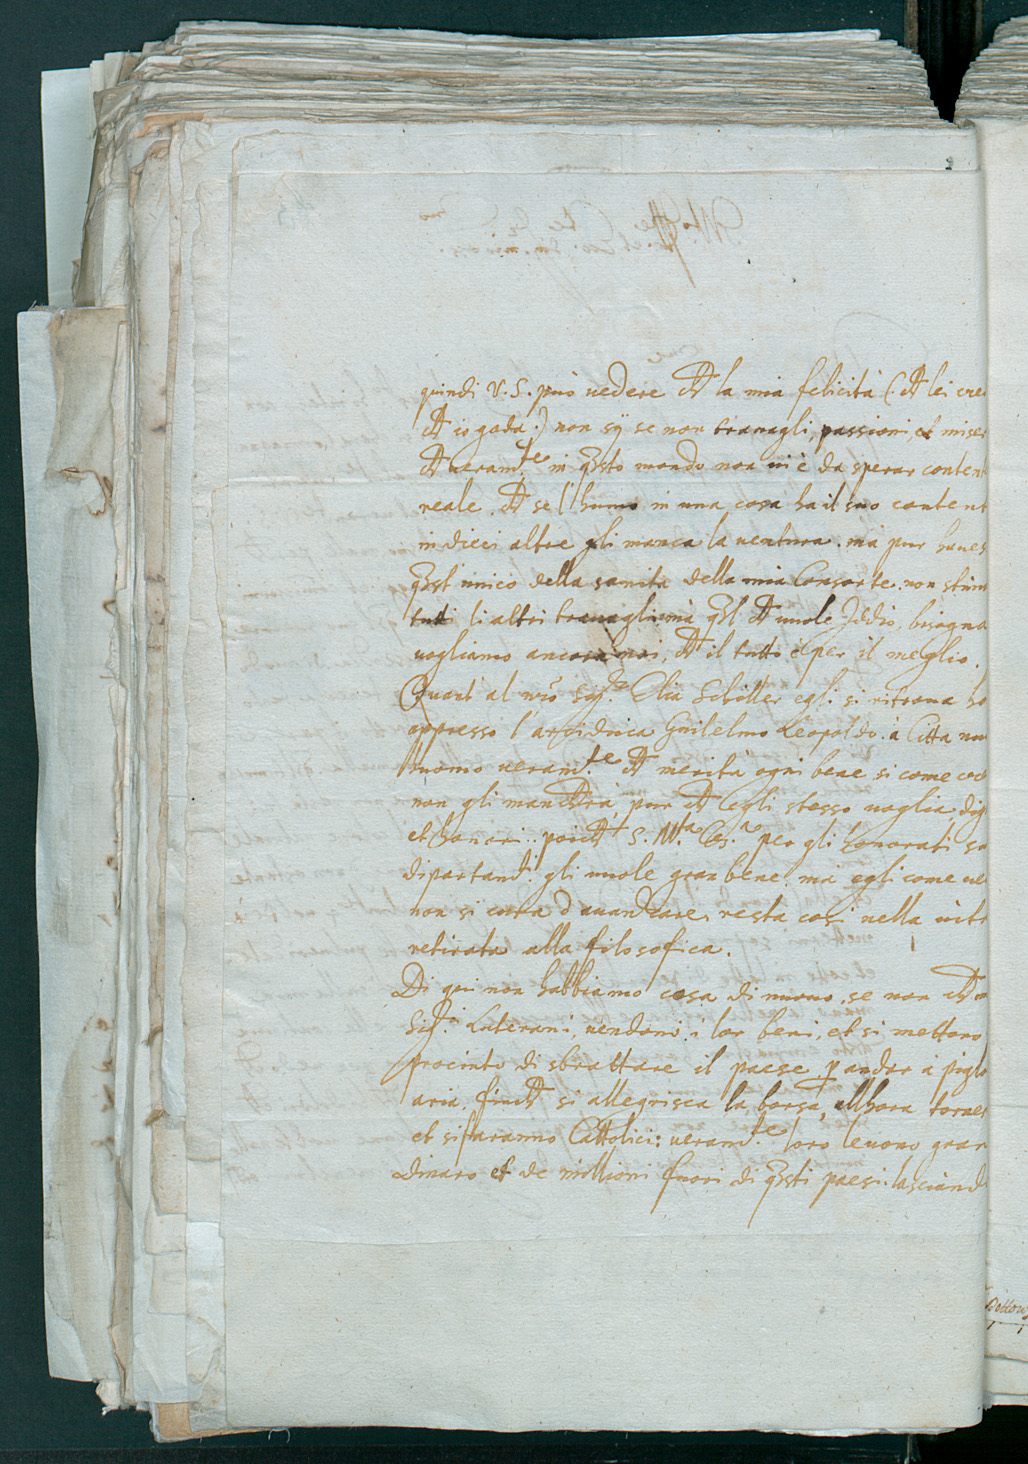 quindi V. S. può uedere ch la mia felicità (: ch lei cre
ch io goda :) non sÿ se non trauagli, passioni, et miser
ch veram.te in qsto mondo non ui è da sperar content
reale. ch se l'humo in una cosa ha il suo content
in dieci altre gli manca la uentura. mà pur haues
qst' unico della sanita della mia Consorte. non stim
tutti li altri trauagli. mà ql ch uuole Iddio, bisogna
uogliamo ancora noi, ch il tutto è per il meglio.
Quant' al nrõ Sig.r Elia Schiller egli si ritroua
appresso l'arciduca Guilelmo Leopoldo. à Citta
huomo veram.te ch merita ogni bene si come
non gli mancħrà pur ch egli stesso uoglia dig
et honori. poich S. M.ta Ces.a per gli honorati
diportand. gli uuole gran bene. mà egli come
non si cura d'auanzare, resta cosi nella uita
retirata alla filosofica.
Di qui non habbiamo cosa di nuouo, se non ch
Sig.ri Luterani, uendono i lor beni, et si mettono
procinto di sbrattare il paese p andar à pigl
aria. finch si allegrisca la borsa, allhora torner
et si faranno Cattolici: veram.te loro leuono gran
dinaro et de millioni fuori di qsti paesi. lasciand